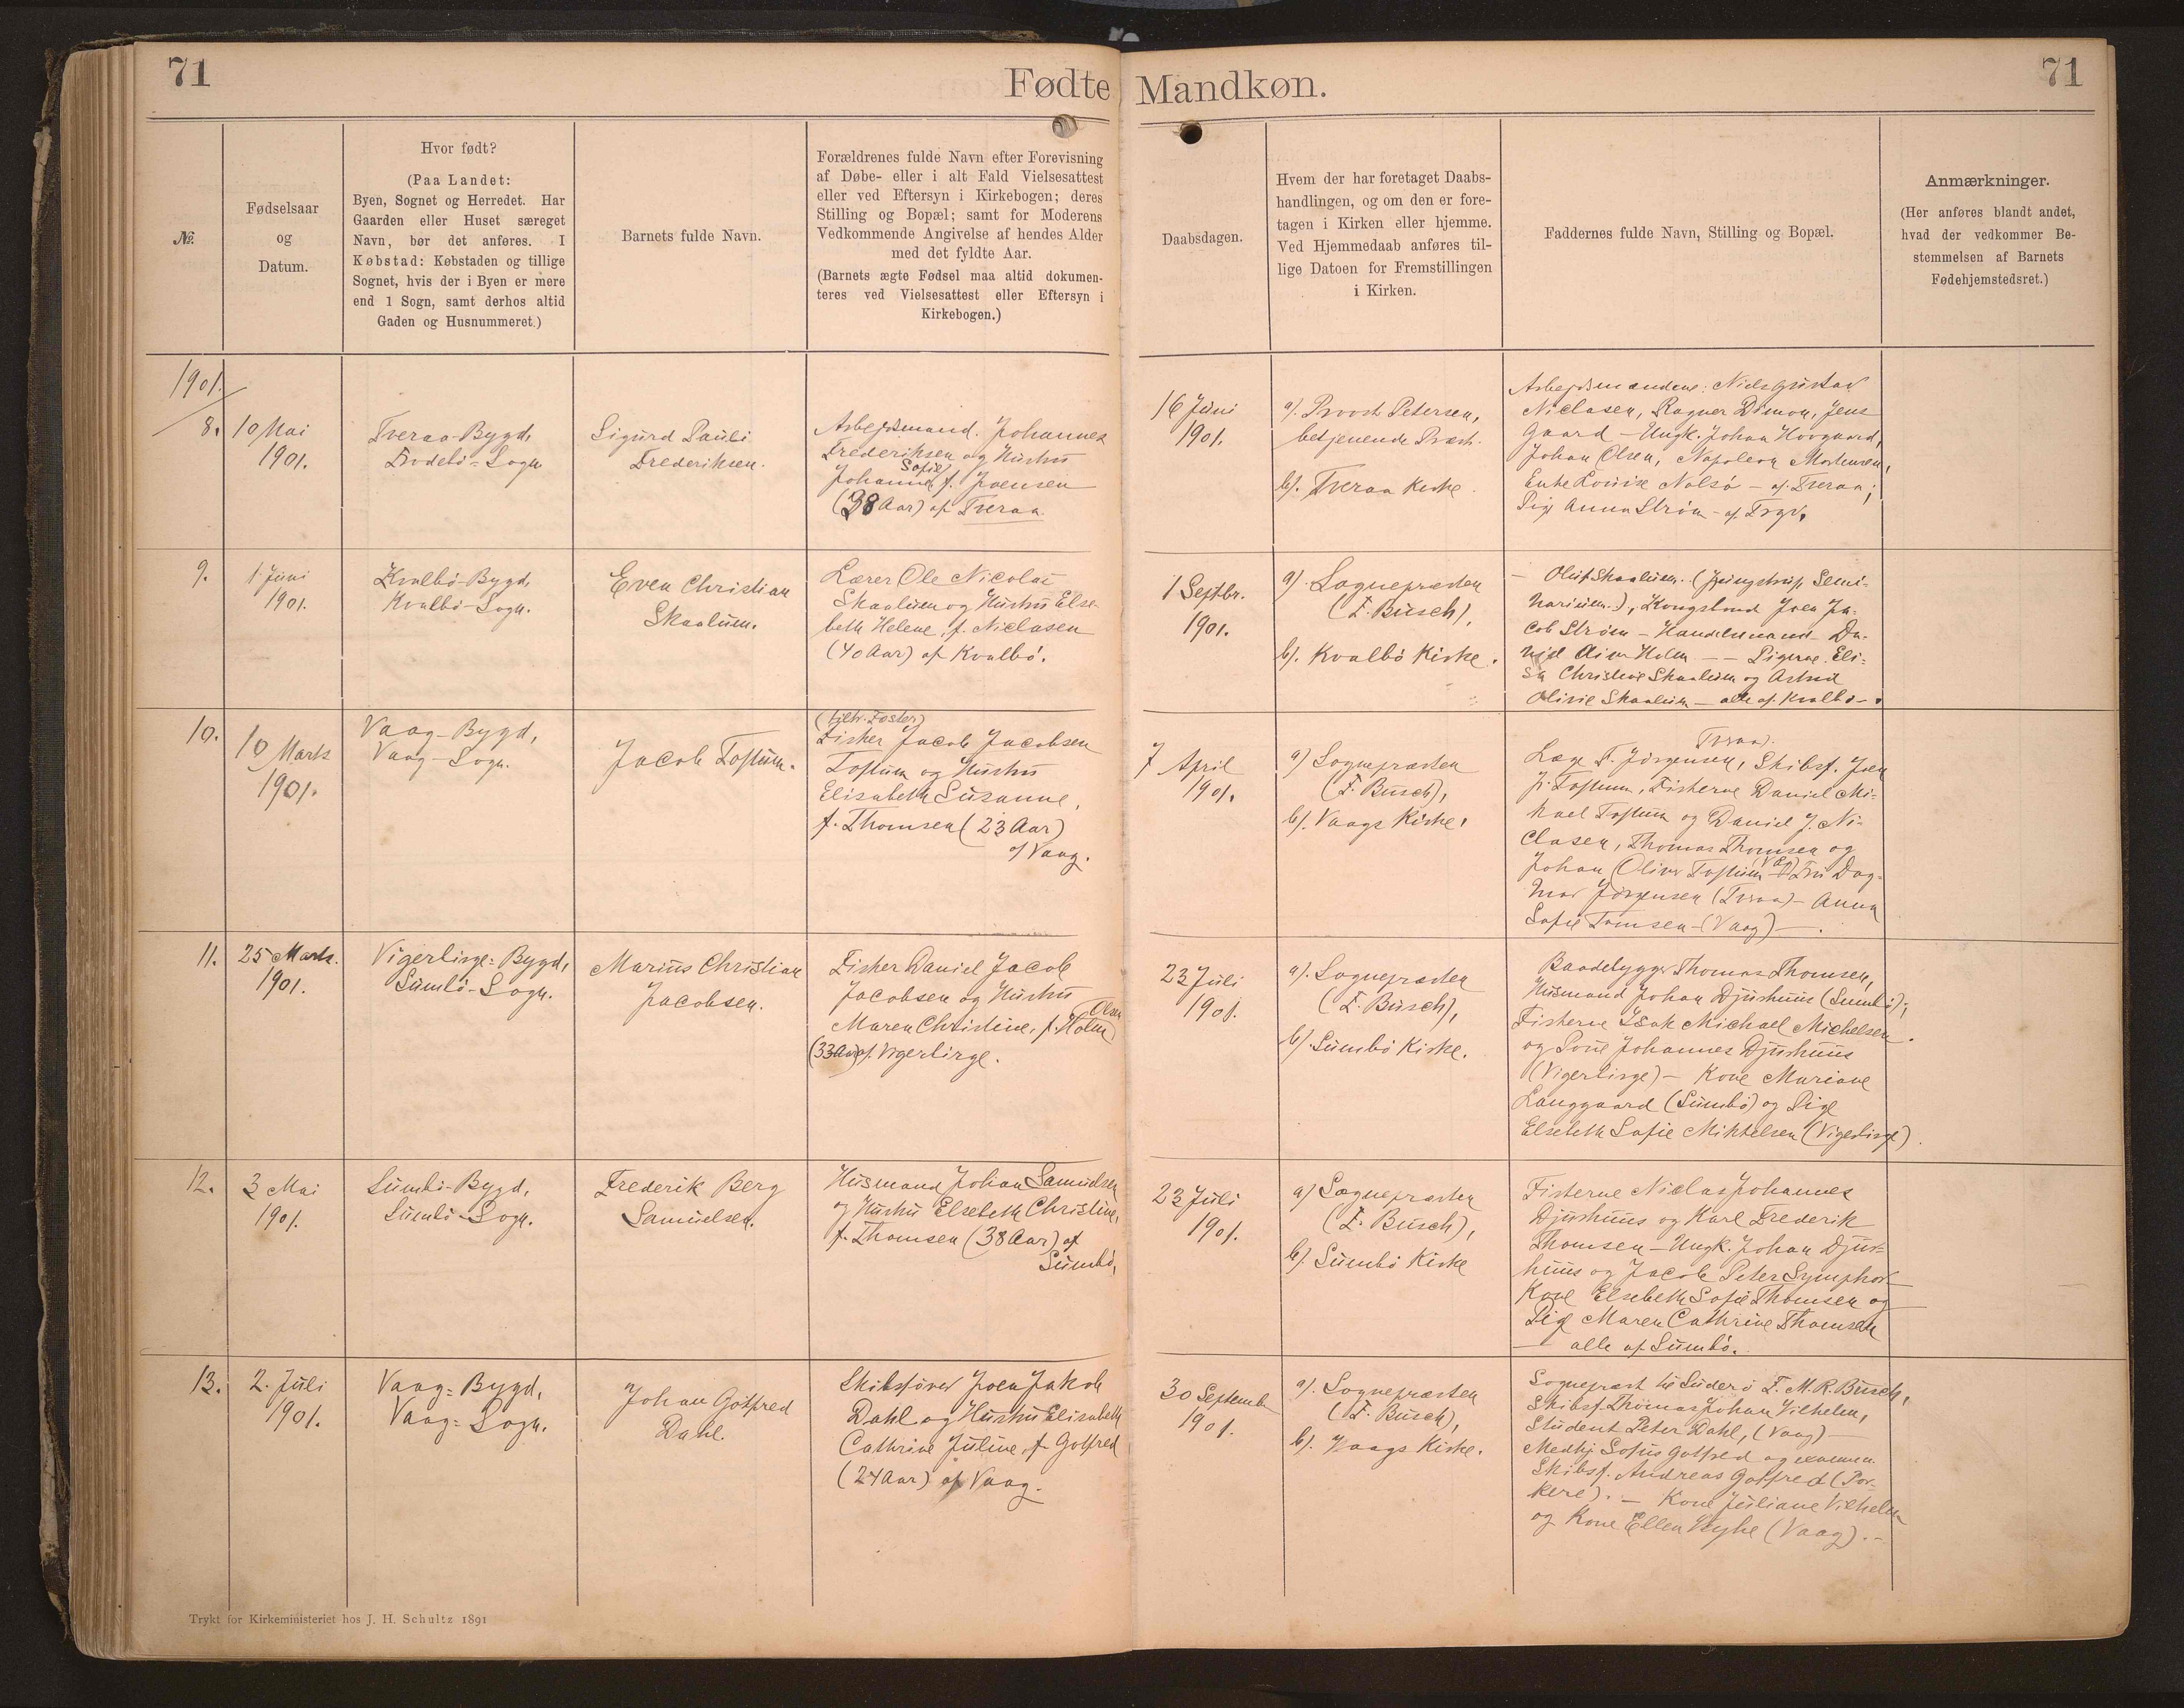 71
Fødte Mandkøn.
71
№.
Fødselsaar
og
Datum.
Hvor født?
(Paa Landet:
Byen, Sognet og Herredet. Har
Gaarden eller Huset særeget
Navn, bør det anføres. I
Købstad: Købstaden og tillige
Sognet, hvis der i Byen er mere
end 1 Sogn, samt derhos altid
Gaden og Husnummeret.)
Barnets fulde Navn.
Forældrenes fulde Navn efter Forevisning
af Døbe- eller i alt Fald Vielsesattest
eller ved Eftersyn i Kirkebogen; deres
Stilling og Bopæl; samt for Moderens
Vedkommende Angivelse af hendes Alder
med det fyldte Aar.
(Barnets ægte Fødsel maa altid dokumen-
teres ved Vielsesattest eller Eftersyn i
Kirkebogen.)
Daabsdagen.
Hvem der har foretaget Daabs-
handlingen, og om den er fore-
tagen i Kirken eller hjemme.
Ved Hjemmedaab anføres til-
lige Datoen for Fremstillingen
i Kirken.
Faddernes fulde Navn, Stilling og Bopæl.
Anmærkninger.
(Her anføres blandt andet,
hvad der vedkommer Be-
stemmelsen af Barnets
Fødehjemstedsret.)
1901.
8.
10 Mai
1901.
Tveraa-Bygd,
Frodebø-Sogn
Sigurd Pauli
Frederiksen.
Arbejdsmand Johannes
Frederiksen og Hustru
Sofie
Johanne f. Joensen
(38 Aar) af Tveraa.
16 Juni
1901.
a). Provst Petersen,
betjenende Præst.
b). Tveraa Kirke.
Arbejdsmændene: Niels Gustav
Niclasen, Ragner Dimon, Jens
Gaard - Ungk. Johan Hovgaard,
Johan Olsen, Napoleon Mortensen,
Enke Louise Nolsø - af Tveraa;
Pige Anna Strøm - af
9.
1 Juni
1901.
Kvalbø-Bygd,
Kvalbø-Sogn.
Even Christian
Skaalum.
Lærer Ole Nicolai
Skaalum og Hustru Else-
beth Helene, f. Niclasen
(40 Aar) af Kvalbø.
1 Septbr.
1901.
a). Sognepræsten
(F. Busch),
b). Kvalbø Kirke.
- Oluf Skaalum. (Jelingstrup Semi-
narium.), Kongsbonde Joen Ja-
cob Strøm - Handelsmand Da-
niel Holm - - Pigerne Eli-
sa Christine Skaalum og Astrid
Olivie Skaalum - alle af Kvalbø -.
10.
10 Marts
1901.
Vaag-Bygd,
Vaag-Sogn.
Jacob Toftum.
Fisker Jacob Jacobsen
Toftum og Hustru
Elisabeth Susanne,
f. Thomsen (23 Aar)
af Vaag.
7 April
1901.
a) Sognepræsten
(F. Busch),
b). Vaags Kirke.
Læge F. Jørgensen, Skibsf. Joen
Toftum, Fiskerne Daniel Mi-
kael Toftum og Daniel J. Ni-
clasen, Thomas Thomsen og
Johan Oliver Toftum Fru Dag-
mar Jørgensen (Tveraa) - Anna
Sofie Tomsen - (Vaag) - .
11.
25 Marts.
1901.
Vigerlirge-Bygd,
Sumbø-Sogn.
Marius Christian
Jacobsen.
Fisker Daniel Jacob
Jacobsen og Hustru
Olsen
Maren Christine, f. Holm
(33 Aar) af Vigerlirge.
23 Juli
1901.
a). Sognepræsten
(F. Busch),
b). Sumbø Kirke.
Baadebygger Thomas Thomsen,
Husmand Johan Djurhuus (Sumbø);
Fiskerne Isak Michael Michelsen
og Poul Johannes Djurhuus
(Vigerlirge) - Kone Mariane
Langgaard (Sumbø) og Pige
Elsebeth Sofie Mikkelsen (Vigerlirge).
12.
3 Mai
1901.
Sumbø-Bygd,
Sumbø-Sogn.
Frederik Berg
Samuelsen.
Husmand Johan Samuelsen
og Hustru Elsebeth Christine,
f. Thomsen (38 Aar) af
Sumbø,
23 Juli
1901.
a) Sognepræsten
(F. Busch),
b). Sumbø Kirke
Fiskerne Niclas Johannes
Djurhuus og Karl Frederik
Thomsen - Ungk. Johan Djur-
huus og Jacob Peter Symphor-
Kone Elsebeth Sofie Thomsen og
Pige Maren Cathrine Thomsen
- alle af Sumbø.
13.
2. Juli
1901.
Vaag-Bygd,
Vaag-Sogn.
Johan Gotfred
Dahl.
Skibsfører Joen Jakob
Dahl og Hustru Elisabeth
Cathrine Juline f. Gotfred
(24 Aar) af Vaag.
30 September
1901.
a). Sognepræsten
(F. Busch),
b). Vaags Kirke.
Sognepræst til Suderø F. M. R. Busch,
Skibsf. Thomas Johan Vilhelm,
Student Peter Dahl, (Vaag) -
Medhj. Sofus Gotfred og
Skibsf. Andreas Gotfred (Por-
kere). - Kone Juliane Vilhelm
og Kone Ellen Weyhe (Vaag). -
Trykt for Kirkeministeriet hos J. H. Schultz 1891